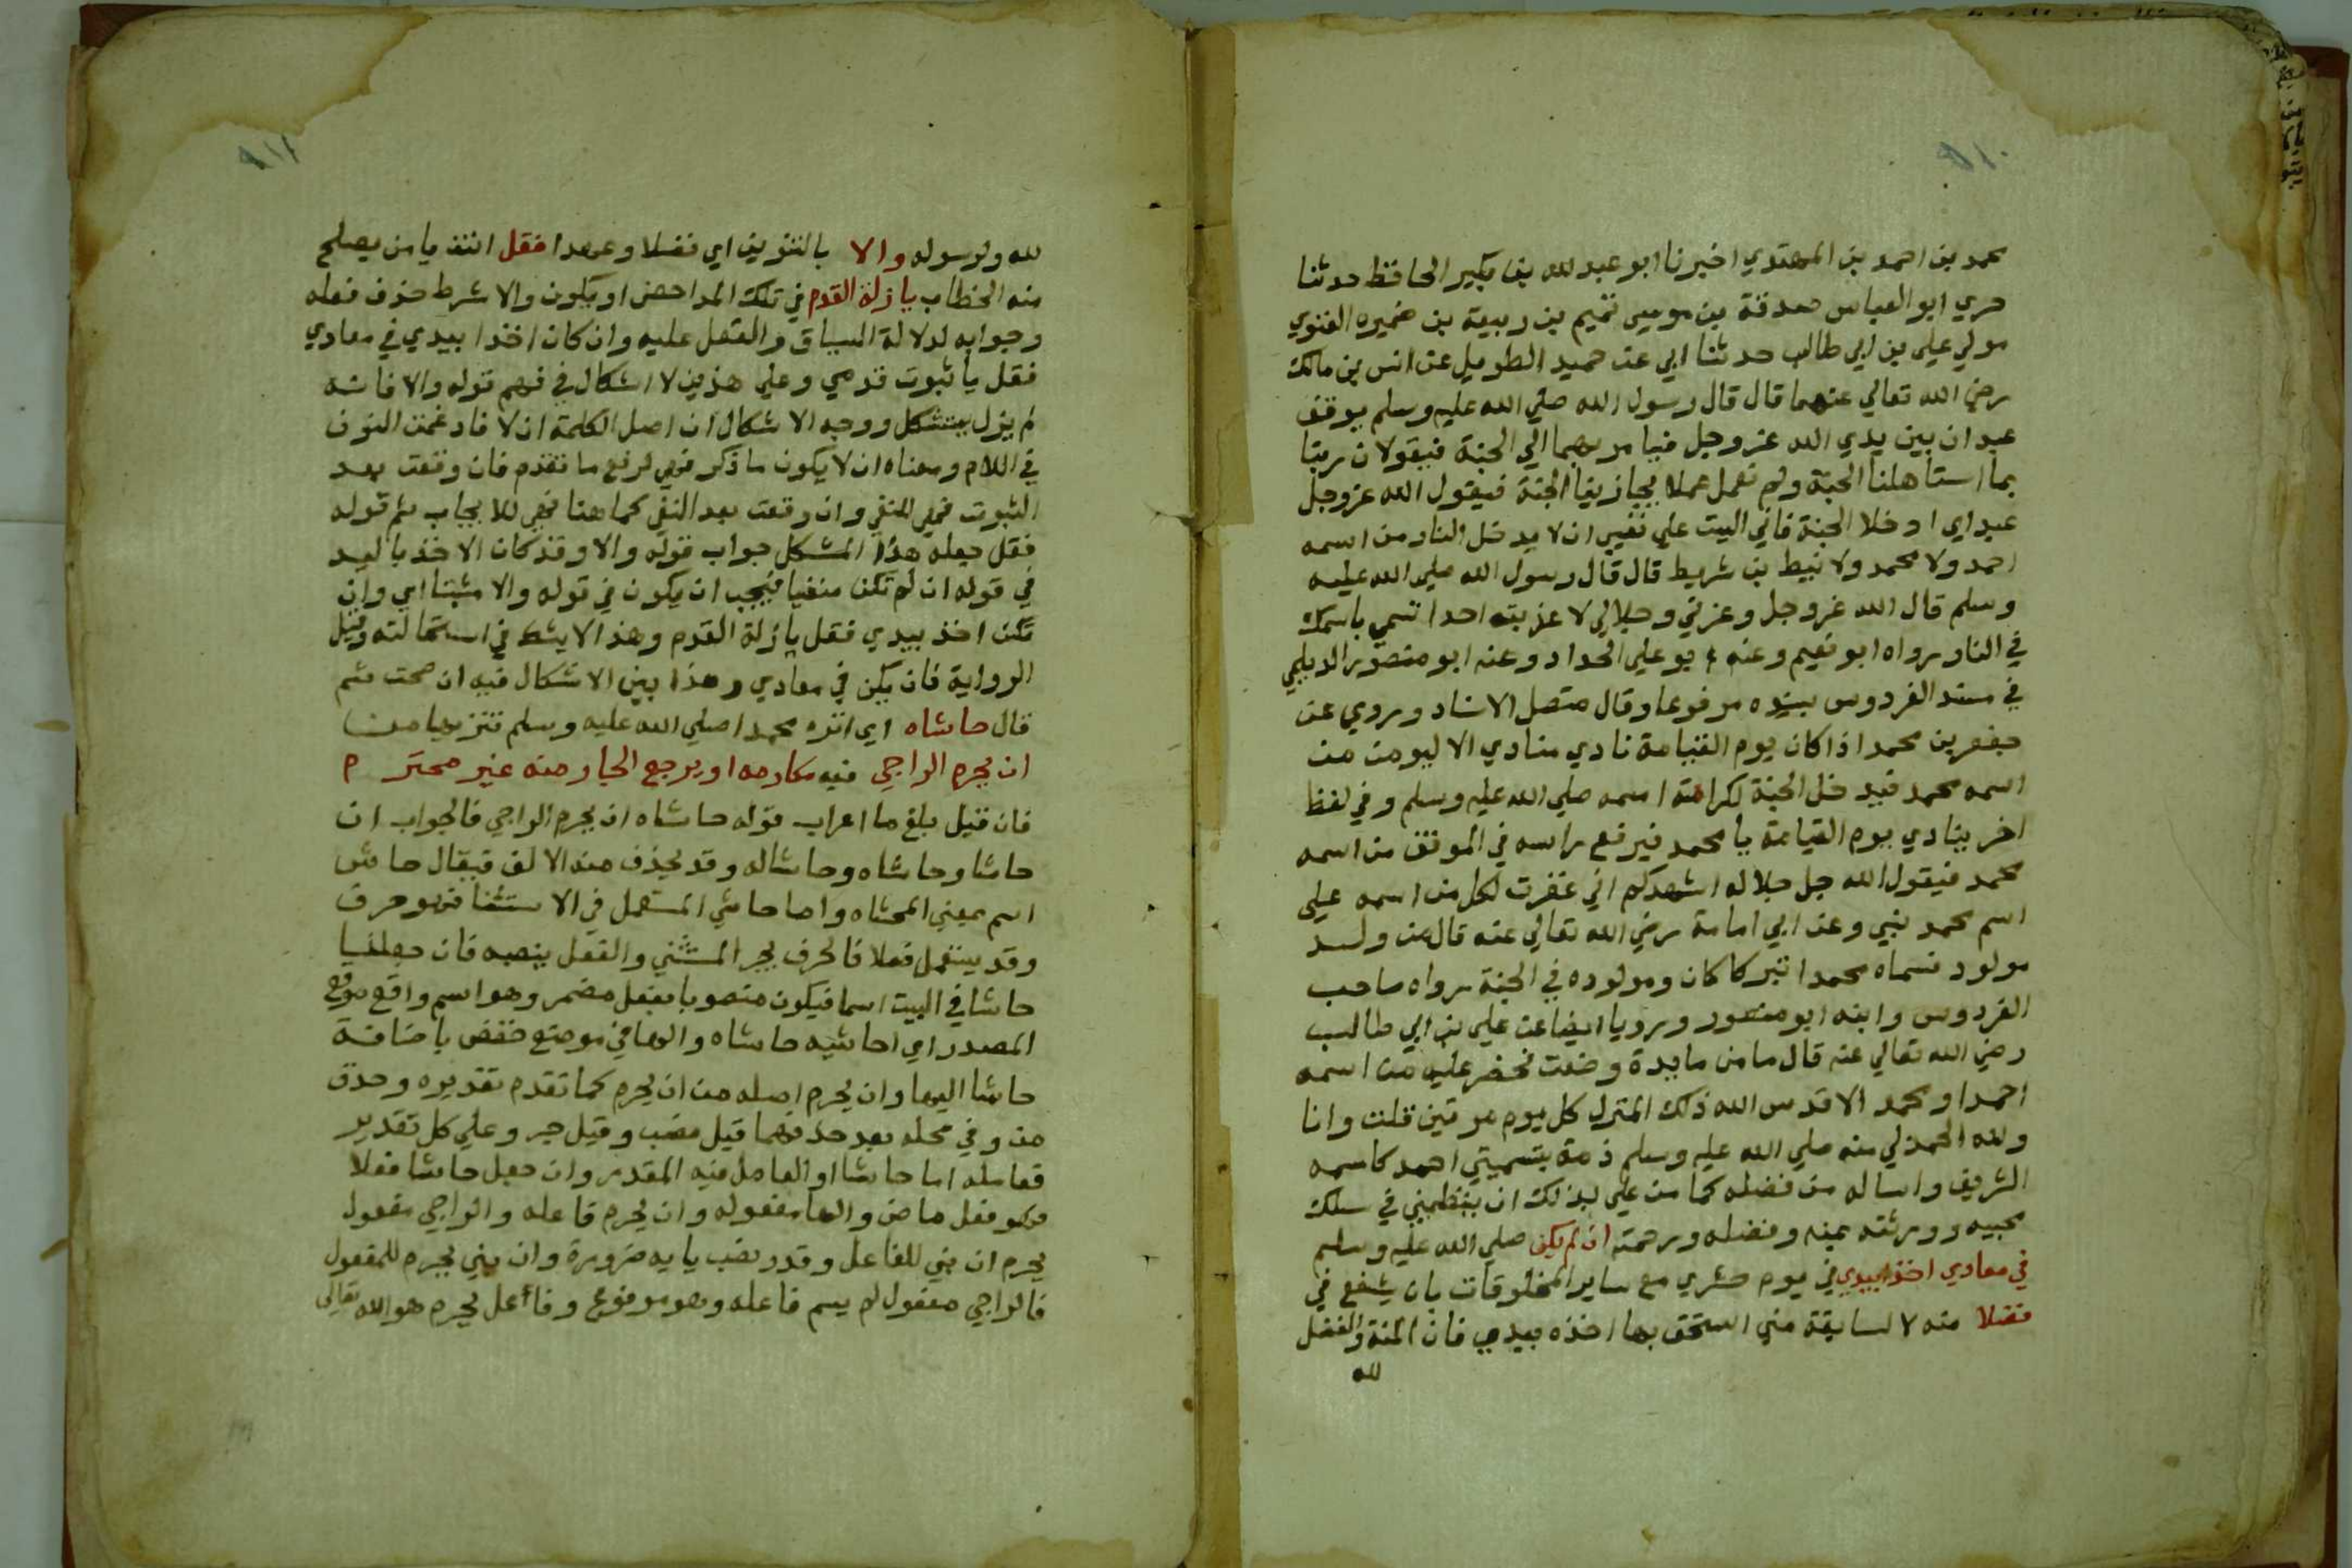 محمد بن احمد بن المهتدي اخبرنا ابو عبد لله بن بكير الحافظ حدثنا
حربي ابو العباس صدقة بن موسى تميم بن ربيعة بن ضميره الغنوي
مولي علي بن ابي طالب حدثنا ابي عن حميد الطويل عن انس بن مالك
رضي الله تعالي عنهما قال قال رسول الله صلي الله عليه وسلم يوقف
عبدان بين يدي الله عز وجل فيامر بهما الي الجنة فيقولان ربنا
بما استاهلنا الجنة ولم نعمل عملا يجازينا الجنة فيقول الله عز وجل
عبداي ادخلا الجنة فاني اليت علي نفسي ان لا يدخل النار من اسمه
احمد ولا محمد ولا نبيط بن شريط قال قال رسول الله صلي الله عليه
وسلم قال الله عز وجل وعزتي وجلالي لا عذبته احدا تسمي باسمك
في النار رواه ابو نعيم وعنه ابو علي الحداد وعنه ابو منصور الديلمي
في مسند الفردوس بسنده مرفوعا وقال متصل الاسناد وروي عن
جعفر بن محمد اذا كان يوم القيامة نادي منادي الا ليومن من
اسمه محمد فيدخل الجنة لكرامة اسمه صلي الله عليه وسلم وفي لفظ
اخر ينادي يوم القيامة يا محمد فيرفع راسه في الموقف من اسمه
محمد فيقول الله جل جلاله اشهدكم اني غفرت لكل من اسمه علي
اسم محمد نبيي وعن ابي امامة رضي الله تعالي عنه قال من ولد
مولود فسماه محمدا تبركا كان ومولوده في الجنة رواه صاحب
الفردوس وابنه ابو منصور ورويا ايضا عن علي بن ابي طالب
رضي الله تعالي عنه قال ما من مايدة وضعت فحضر عليه من اسمه
احمد او محمد الا قدس الله ذلك المنزل كل يوم مرتين قلت وانا
ولله الحمد لي منه صلي الله عليه وسلم ذمة بتسميتي احمد كاسمه
الشريف واساله من فضله كما من علي بذلك ان ينظمني في سلك
محبيه وورثته بمنه وفضله ورحمته ان لم يكن صلي الله عليه وسلم
في معادي اخذا بيدي في يوم حشري مع ساير المخلوقات بان يشفع في
فضلا منه لا لسابقة مني استحق بها اخذه بيدي فان المنة والفضل
لله
لله ولرسوله والا بالتنوين اي فضلا وعهدا فقل انت يا من يصلح
منه الخطاب يا زلة القدم في تلك المداحض او يكون والا شرط حذف فعله
وجوابه لدلالة السياق والفعل عليه وان كان اخذا بيدي في معادي
فقل يا ثبوت قدمي وعلي هذين لا اشكال في فهم قوله والا فانه
لم يزل يستشكل ووجه الاشكال ان اصل الكلمة ان لا فادغمت النون
في اللام ومعناه ان لا يكون ما ذكر فهي لرفع ما تقدم فان وقعت بعد
الثبوت فهي للنفي وان وقعت بعد النفي كما هنا فهي للايجاب ثم قوله
فقل جعله هذا المشكل جواب قوله والا وقد كان الاخذ باليد
في قوله ان لم تكن منفيا فيجب ان يكون في قوله والا مثبتا اي وان
تكن اخذ بيدي فقل يا زلة القدم وهذا لا يشك في استحالته وقيل
الرواية فان يكن في معادي وهذا بين الاشكال فيه ان صحت ثم
قال حاشاه اي انزه محمدا صلي الله عليه وسلم تنزيها من
ان يحرم الراجي فيه مكارمه او يرجع الجار منه غير محتر م
فان قيل بلغ ما اعراب قوله حاشاه ان يحرم الراجي فالجواب ان
حاشا وحاشاه وحاشاله وقد يحذف منه الالف فيقال حاش
اسم بمعني المحشاه واما حاشي المستعمل في الاستثنا فهو حرف
وقد يستعمل فعلا فالحرف يجر المستثني والفعل ينصبه فان جعلنا
حاشا في البيت اسما فيكون منصوبا بفعل مضمر وهو اسم واقع موقع
المصدر اي احاشيه حاشاه والها في موضع خفض باضافة
حاشا اليها وان يحرم اصله من ان يحرم كما تقدم تقديره وحذف
من وفي محله بعد حذفهما قيل نصب وقيل جر وعلي كل تقدير
فعامله اما حاشا او العامل فيه المقدر وان جعل حاشا فعلا
فهو فعل ماض والها مفعوله وان يحرم فاعله والراجي مفعول
يحرم ان بني للفاعل وقدر نصب يايه ضرورة وان بني يحرم للمفعول
فالراجي مفعول لم يسم فاعله وهو مرفوع وفاعل يحرم هو الله تعالي